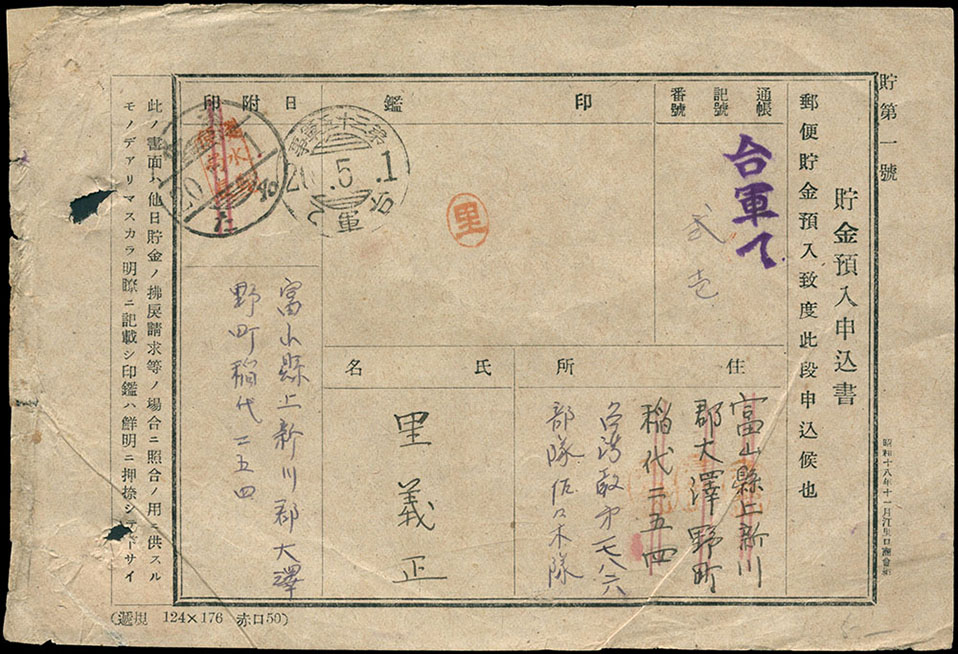 貯第一號
貯金預入申込書
昭和十八年十一月
郵便貯金預入致度此段申込候也
通帳
記號
番號
台軍て
弐
壱
印鑑
里
日附印
第三十五軍事
20.5.1
台軍
た
住所
富山縣上新川
郡大澤野町
稲代二五四
部隊佐々木隊
氏名
里義正
富山縣上新川郡大澤
野町稲代二五四
此ノ書面ハ他日貯金ノ拂戻請求等ノ場合ニ照合ノ用ニ供スル
モノデアリマスカラ明瞭ニ記載シ印鑑ハ鮮明ニ押捺シ サイ
(遞規 124×176 赤口50)